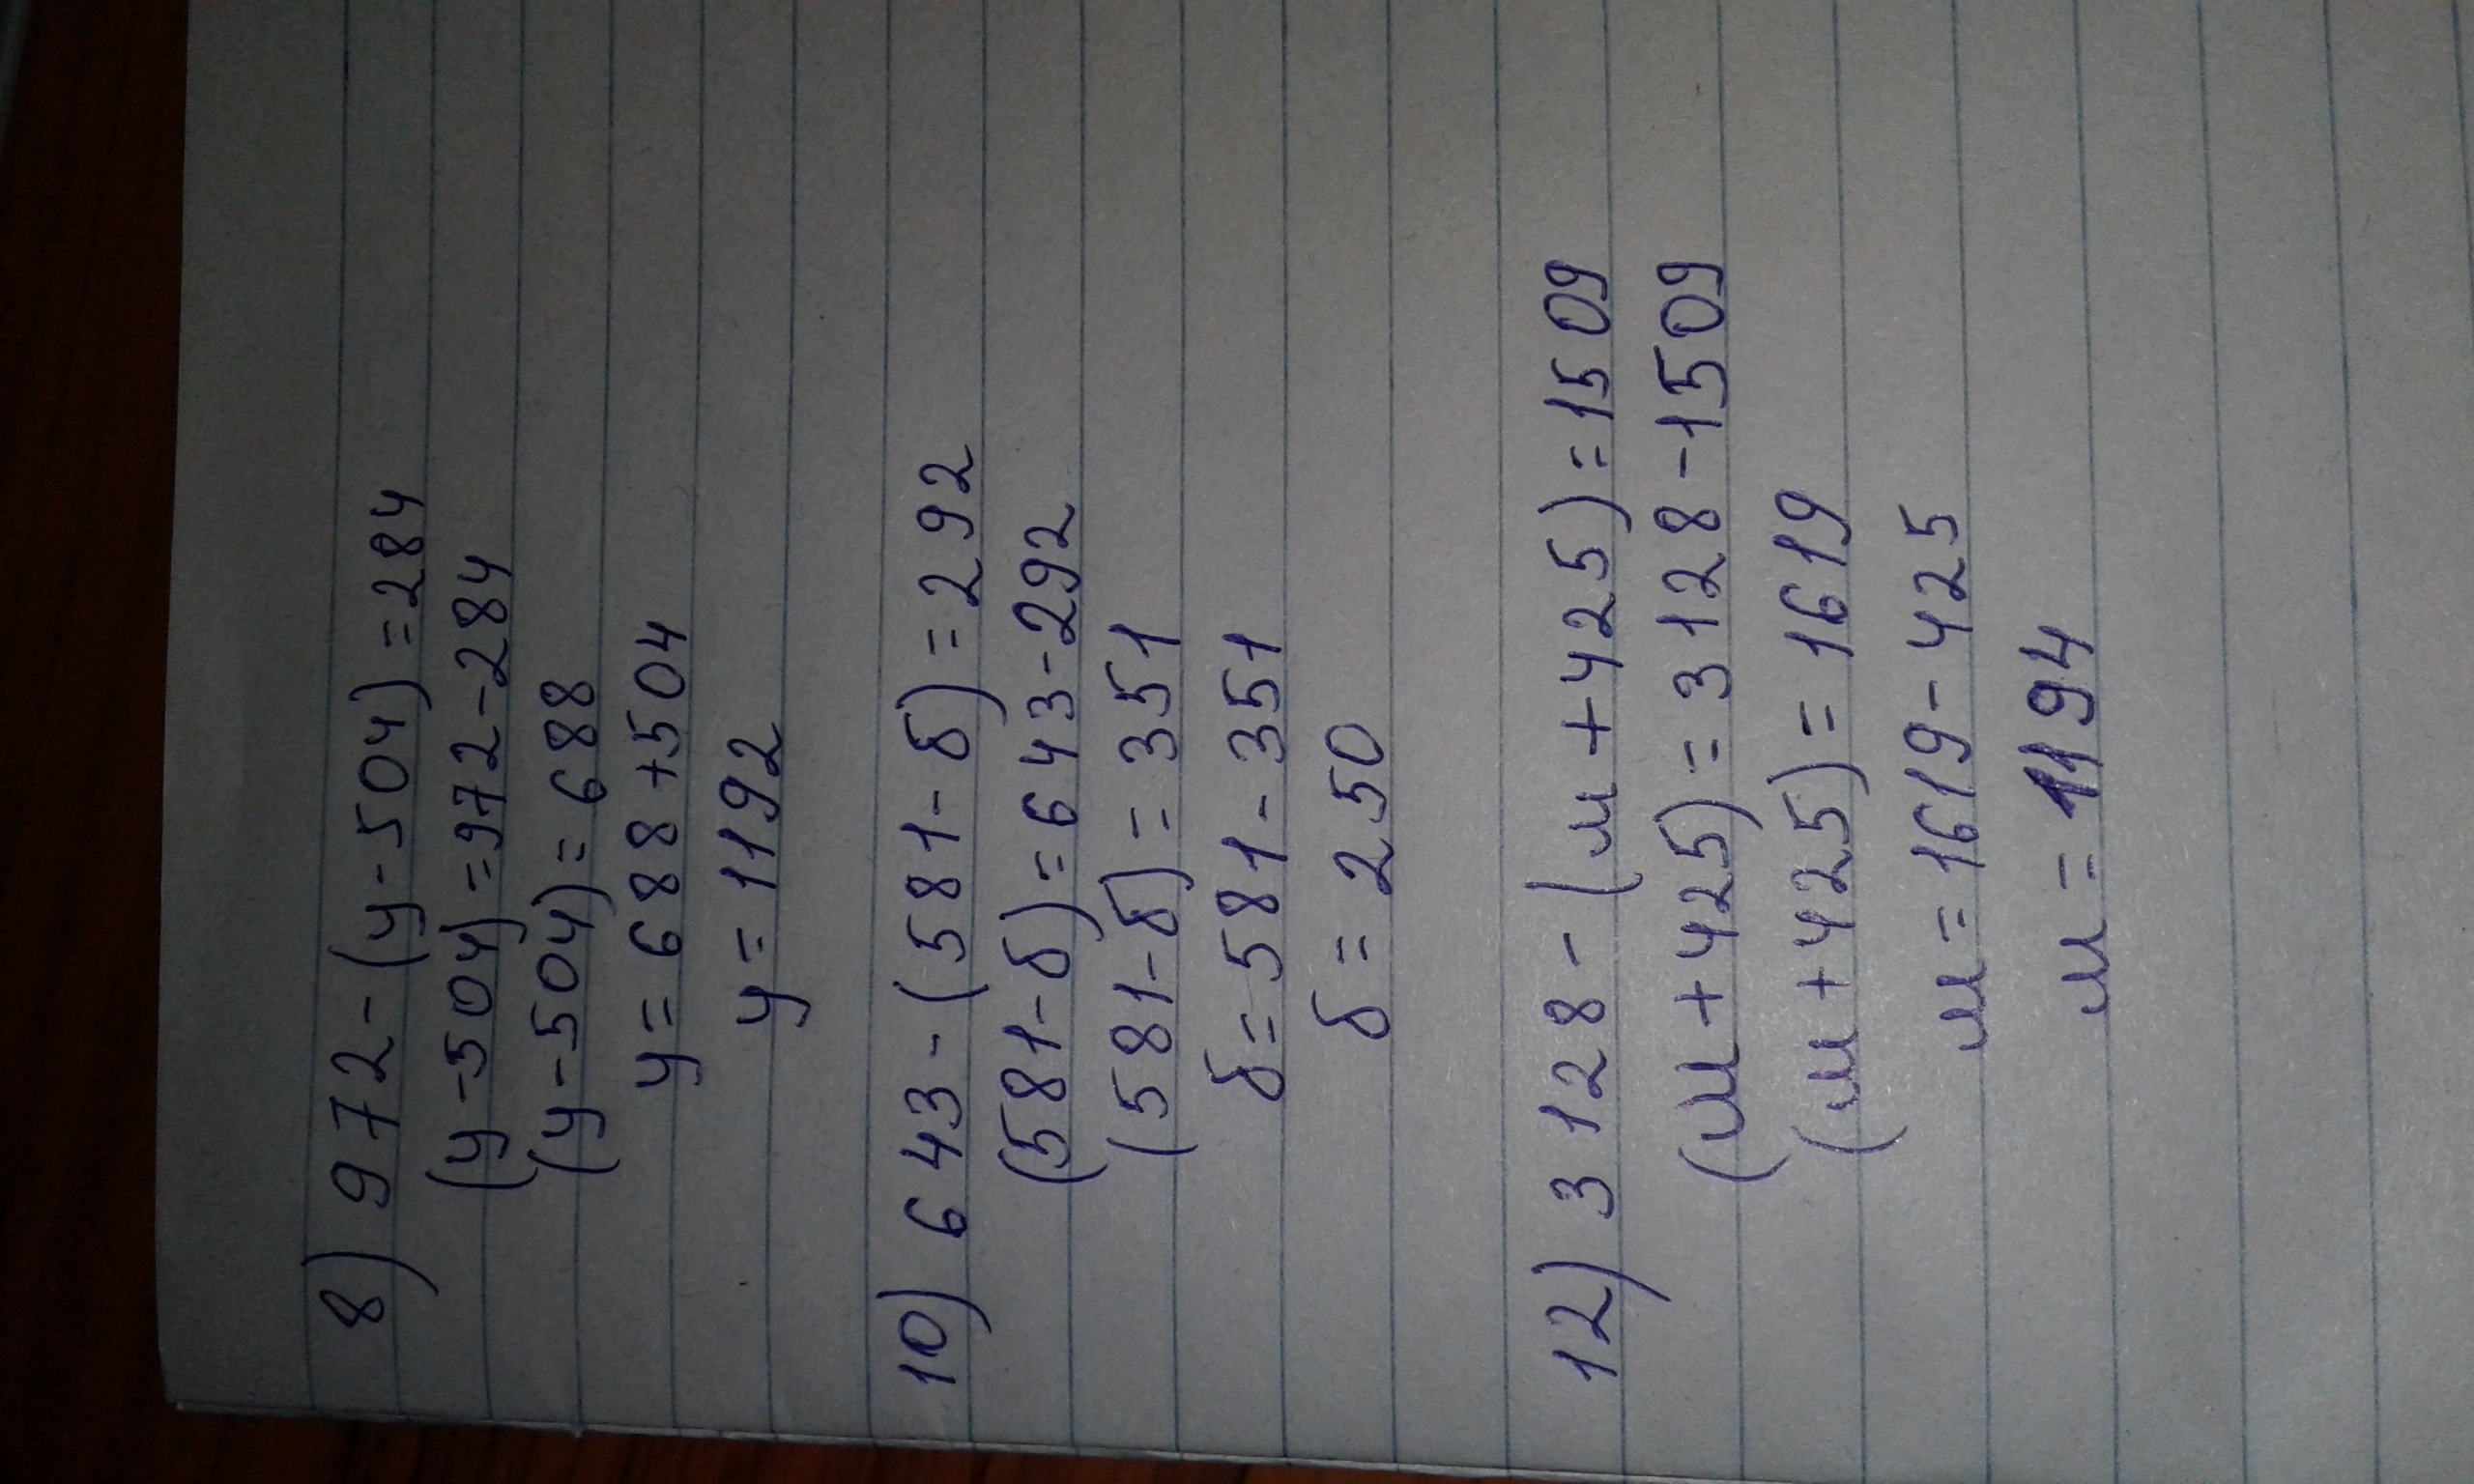 8) 972-(y-504)=284
(y-504)=972-284
(y-504)=688
y=688+504
y=1192
10) 643-(581-δ)=292
(581-δ)=643-292
(581-δ)=351
δ=581-351
δ=250
12) 3128-(м+425)=1509
(м+425)=3128-1509
(м+425)=1619
м=1619-425
м=1194